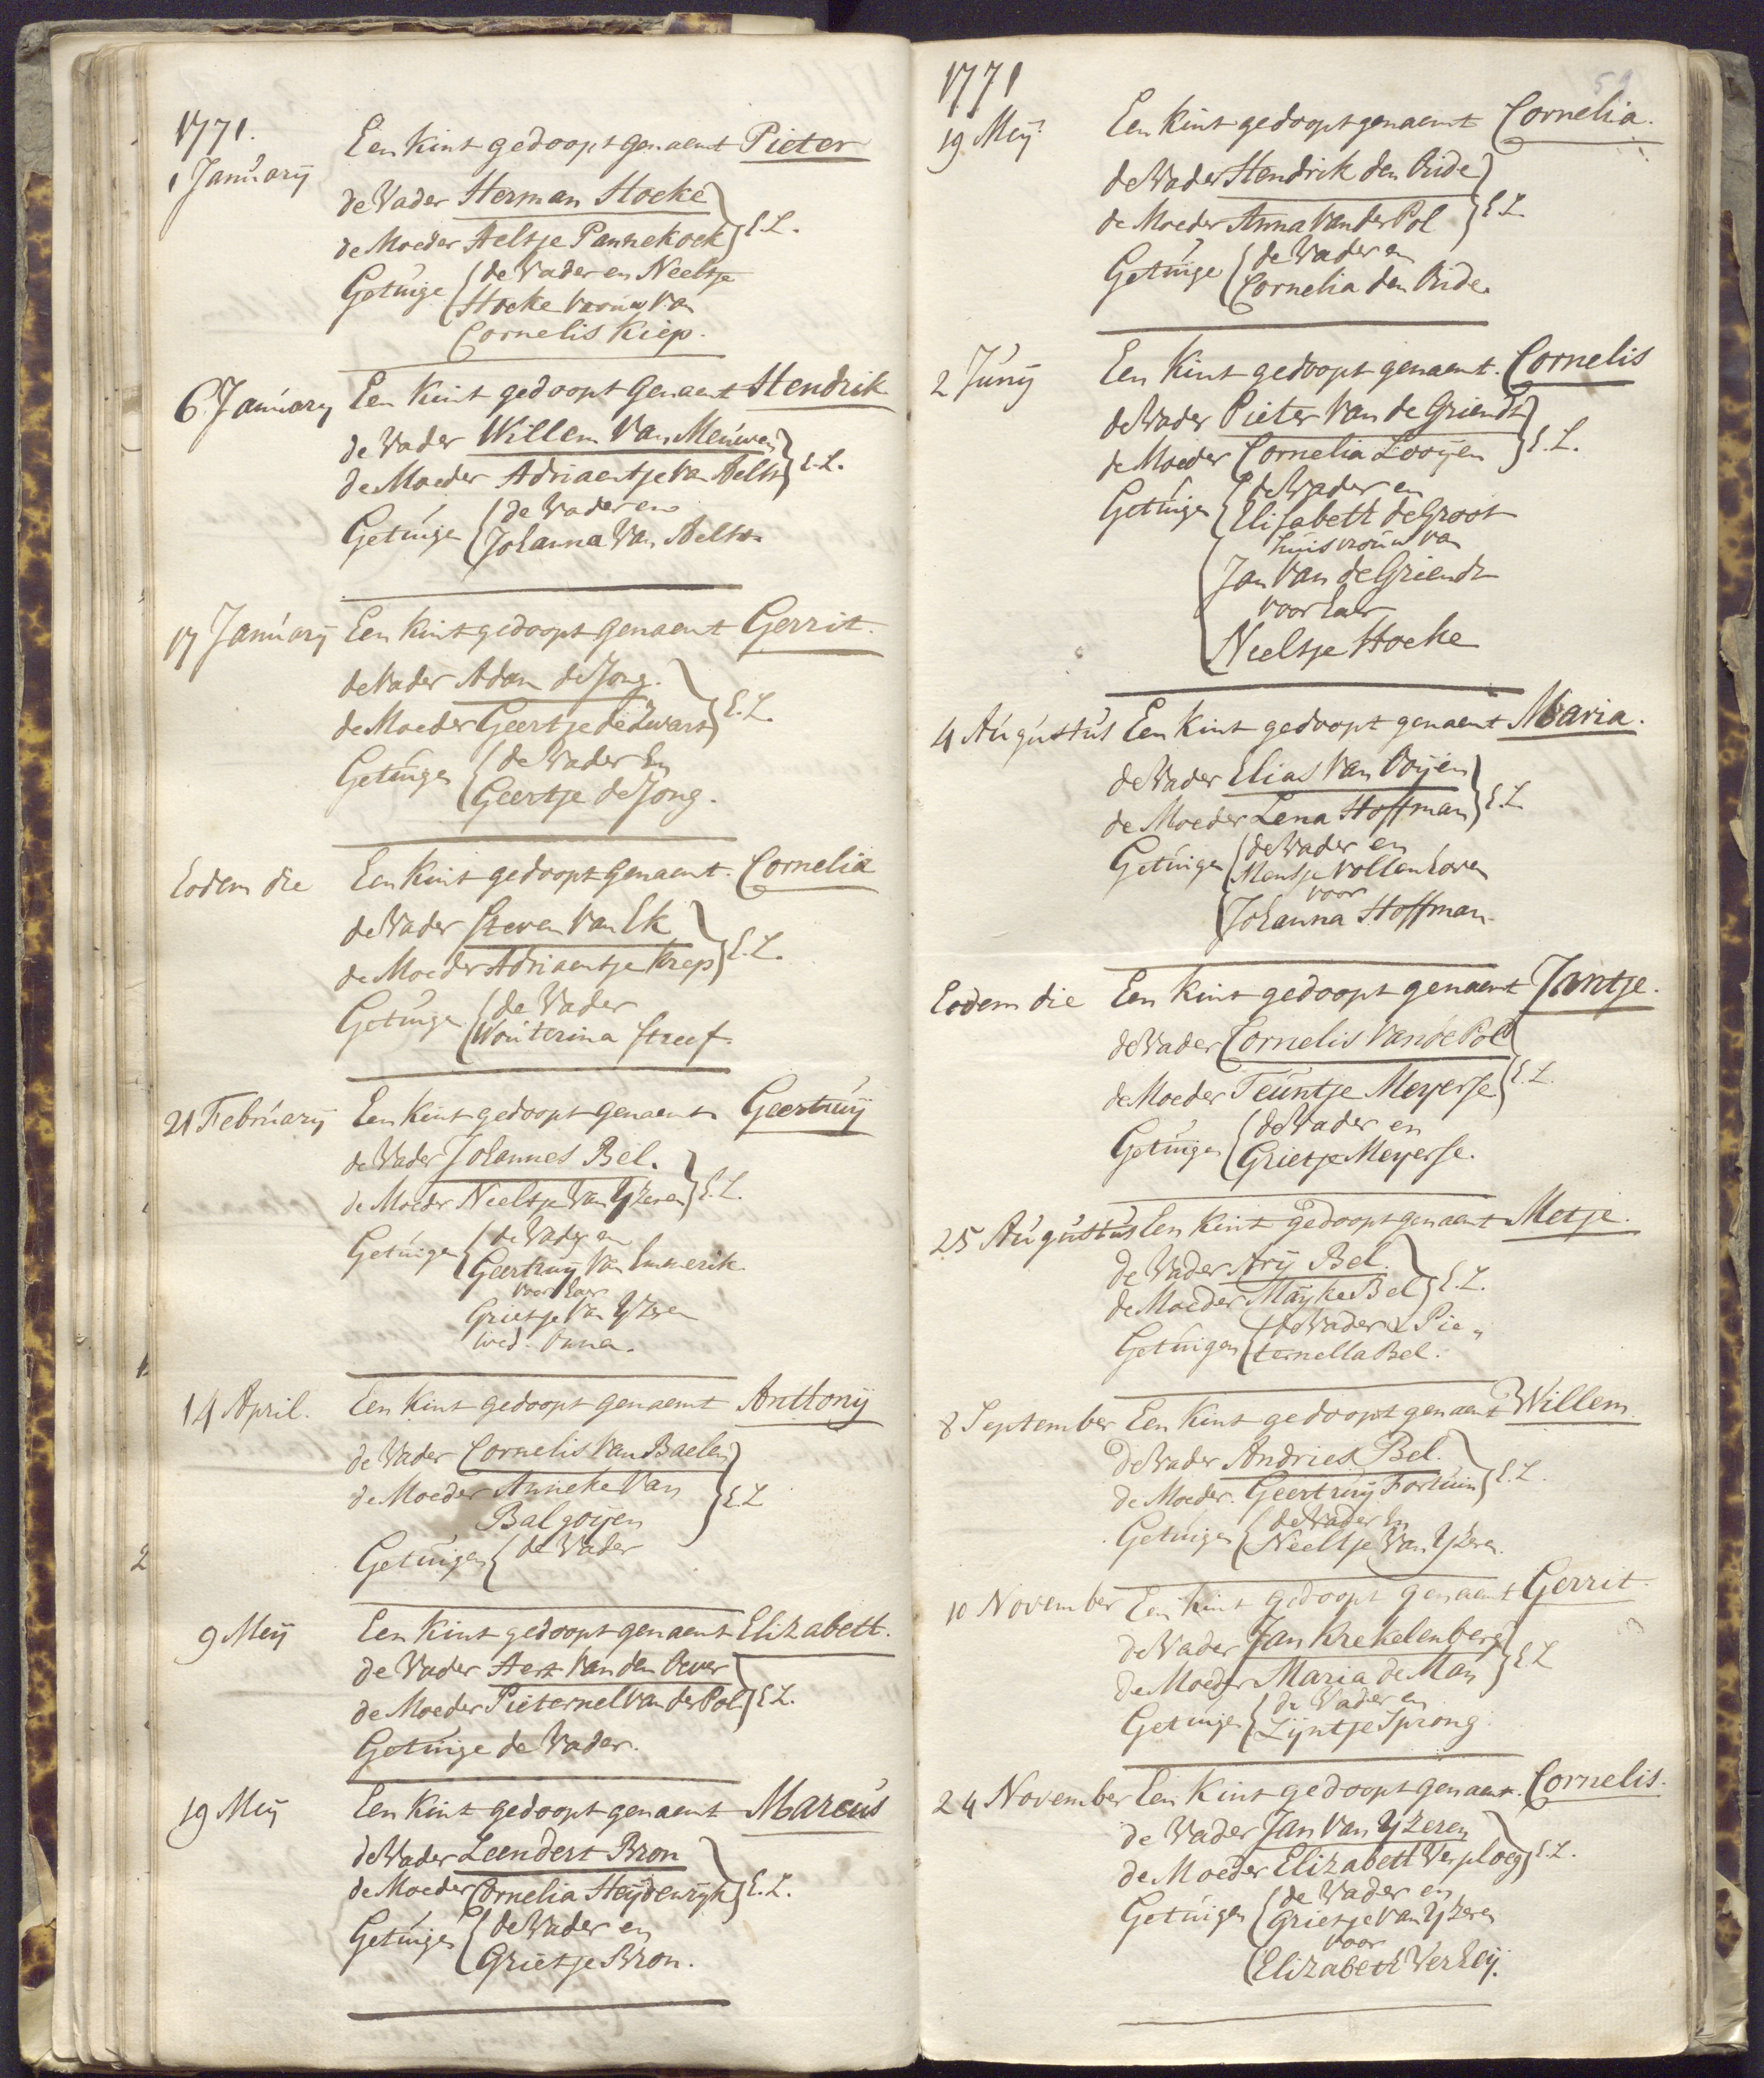 1771.
1 Januarij Een kint gedoopt genaemt Pieter
de Vader Herman Hoeke
de Moeder Aeltje Pannekoek } E.L.
Getuige de Vader en Neeltje
Hoeke vrouw van
Cornelis Kiep.
6 January Een kint gedoopt Genaemt Hendrik
de Vader Willem Van Meuwen
de Moeder Adriaentje Van Aelst } E.L.
Getuige de Vader en
Johanna Van Aelst
17 Januarij Een kint gedoopt genaemt Gerrit.
de Vader Adam de Jong.
de Moeder Geertje de Zwart } E.L.
Getuigen de Vader En
Geertje de Jong.
Eodem die Een kint gedoopt genaemt. Cornelia
de Vader Steven Van Ek
de Moeder Adriaentje Kreps } E.L.
Getuige de Vader
Wouterina Streef
21 Februarij Een kint gedoopt genaemt Geertruij
de Vader Johannes Bel.
de Moeder Neeltje Van Yzeren } E.L.
Getuigen de Vader en
Geertruij Van Emmerik
voor haer
Grietje Van Yzeren
Wed.
14 April. Een kint gedoopt genaemt Anthonij
de Vader Cornelis Van Baelen
de Moeder Anneke Van
Balgoijen } E.L
Getuigen de Vader
9 Meij Een kint gedoopt genaemt Elizabeth.
de Vader Aert Van den Oever
de Moeder Pieternel Van der Pol } E.L.
Getuige de Vader.
19 Meij Een kint gedoopt genaemt Marcus
de Vader Leendert Bron
de Moeder Cornelia Heijdewijk } E.L.
Getuigen de Vader en
Grietje Bron.
1771
19 Meij Een kint gedoopt genaemt Cornelia.
de Vader Hendrik den Oude
de Moeder Anna Van der Pol } E.L.
Getuige de Vader en
Cornelia den Oude.
2 Junij Een Kint gedoopt genaemt. Cornelis
de Vader Pieter Van de Griendt
de Moeder Cornelia Looijen } E.L.
Getuigen de Vader en
Elisabeth de Groot
huisvrouw van
Jan Van de Griendt
voor haer
Neeltje Hoeke
4 Augustus Een kint gedoopt genaemt Maria.
de Vader Elias Van Ooijen
de Moeder Lena Hoffman } E.L
Getuigen de Vader en
Mentje Vollenhoven
voor
Johanna Hoffman.
Eodem die Een kint gedoopt genaemt Jantje.
de Vader Cornelis Van de Pol
de Moeder Teuntje Meyerse } E.L.
Getuigen de Vader en
Grietje Meyerse.
25 Augustus Een kint gedoopt genaemt Metje.
de Vader Arij Bel.
de Moeder Maijke Bel } E.L.
Getuigen de Vader & Pie
ternella Bel.
8 September Een kint gedoopt genaemt Willem
de Vader Andries Bel.
de Moeder. Geertruij Fortuin } E.L.
Getuigen de Vader En
Neeltje Van Yzeren.
10 November Een kint gedoopt genaemt Gerrit.
de Vader Jan Krekelenberg
de Moeder Maria de Man } E.L
Getuigen de Vader en
Lijntje Sprong.
24 November Een Kint gedoopt genaemt. Cornelis.
de Vader Jan Van Yzeren
de Moeder Elizabeth Verploeg } E.L.
Getuigen de Vader en
Grietje Van Yzeren
voor
Elizabeth Verheij.